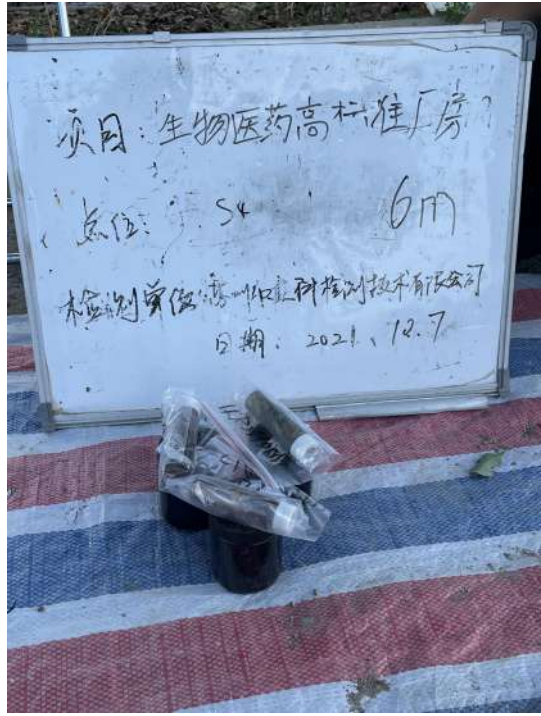 项目：生物医药高标准厂房
点位： S4 6m
检测单位：科检测技术有限公司
日期：2021、12.7